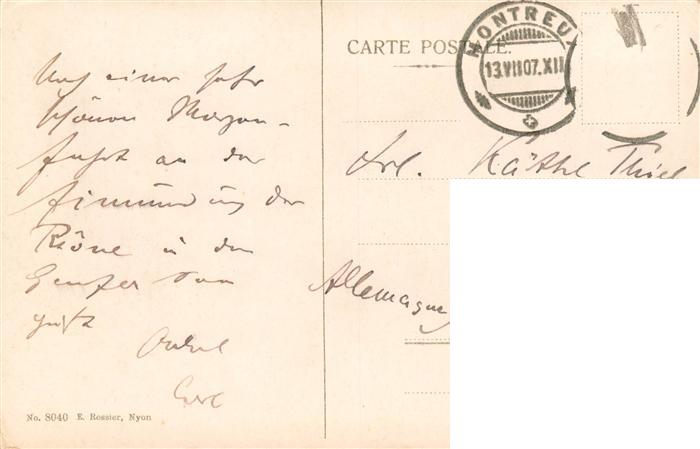 CARTE POSTALE.
MONTREUX
13.VII07.XII
Auf einer sehr
schönen Morgen-
fahrt an der
Einmündung der
Rhône in den
Genfer See
grüßt
Onkel
Carl
Frl. Käthe Thiel
Allemagne
No. 8040 E. Rossier, Nyon